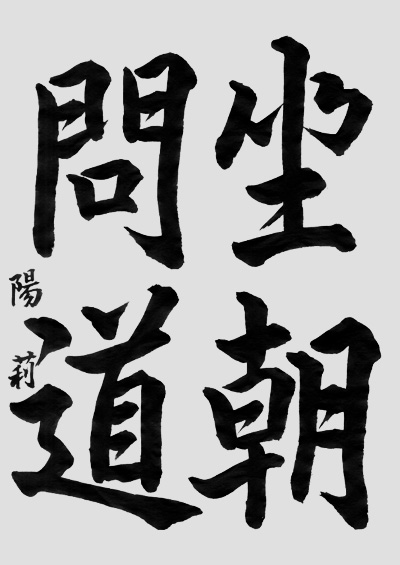 坐朝
問道
陽莉